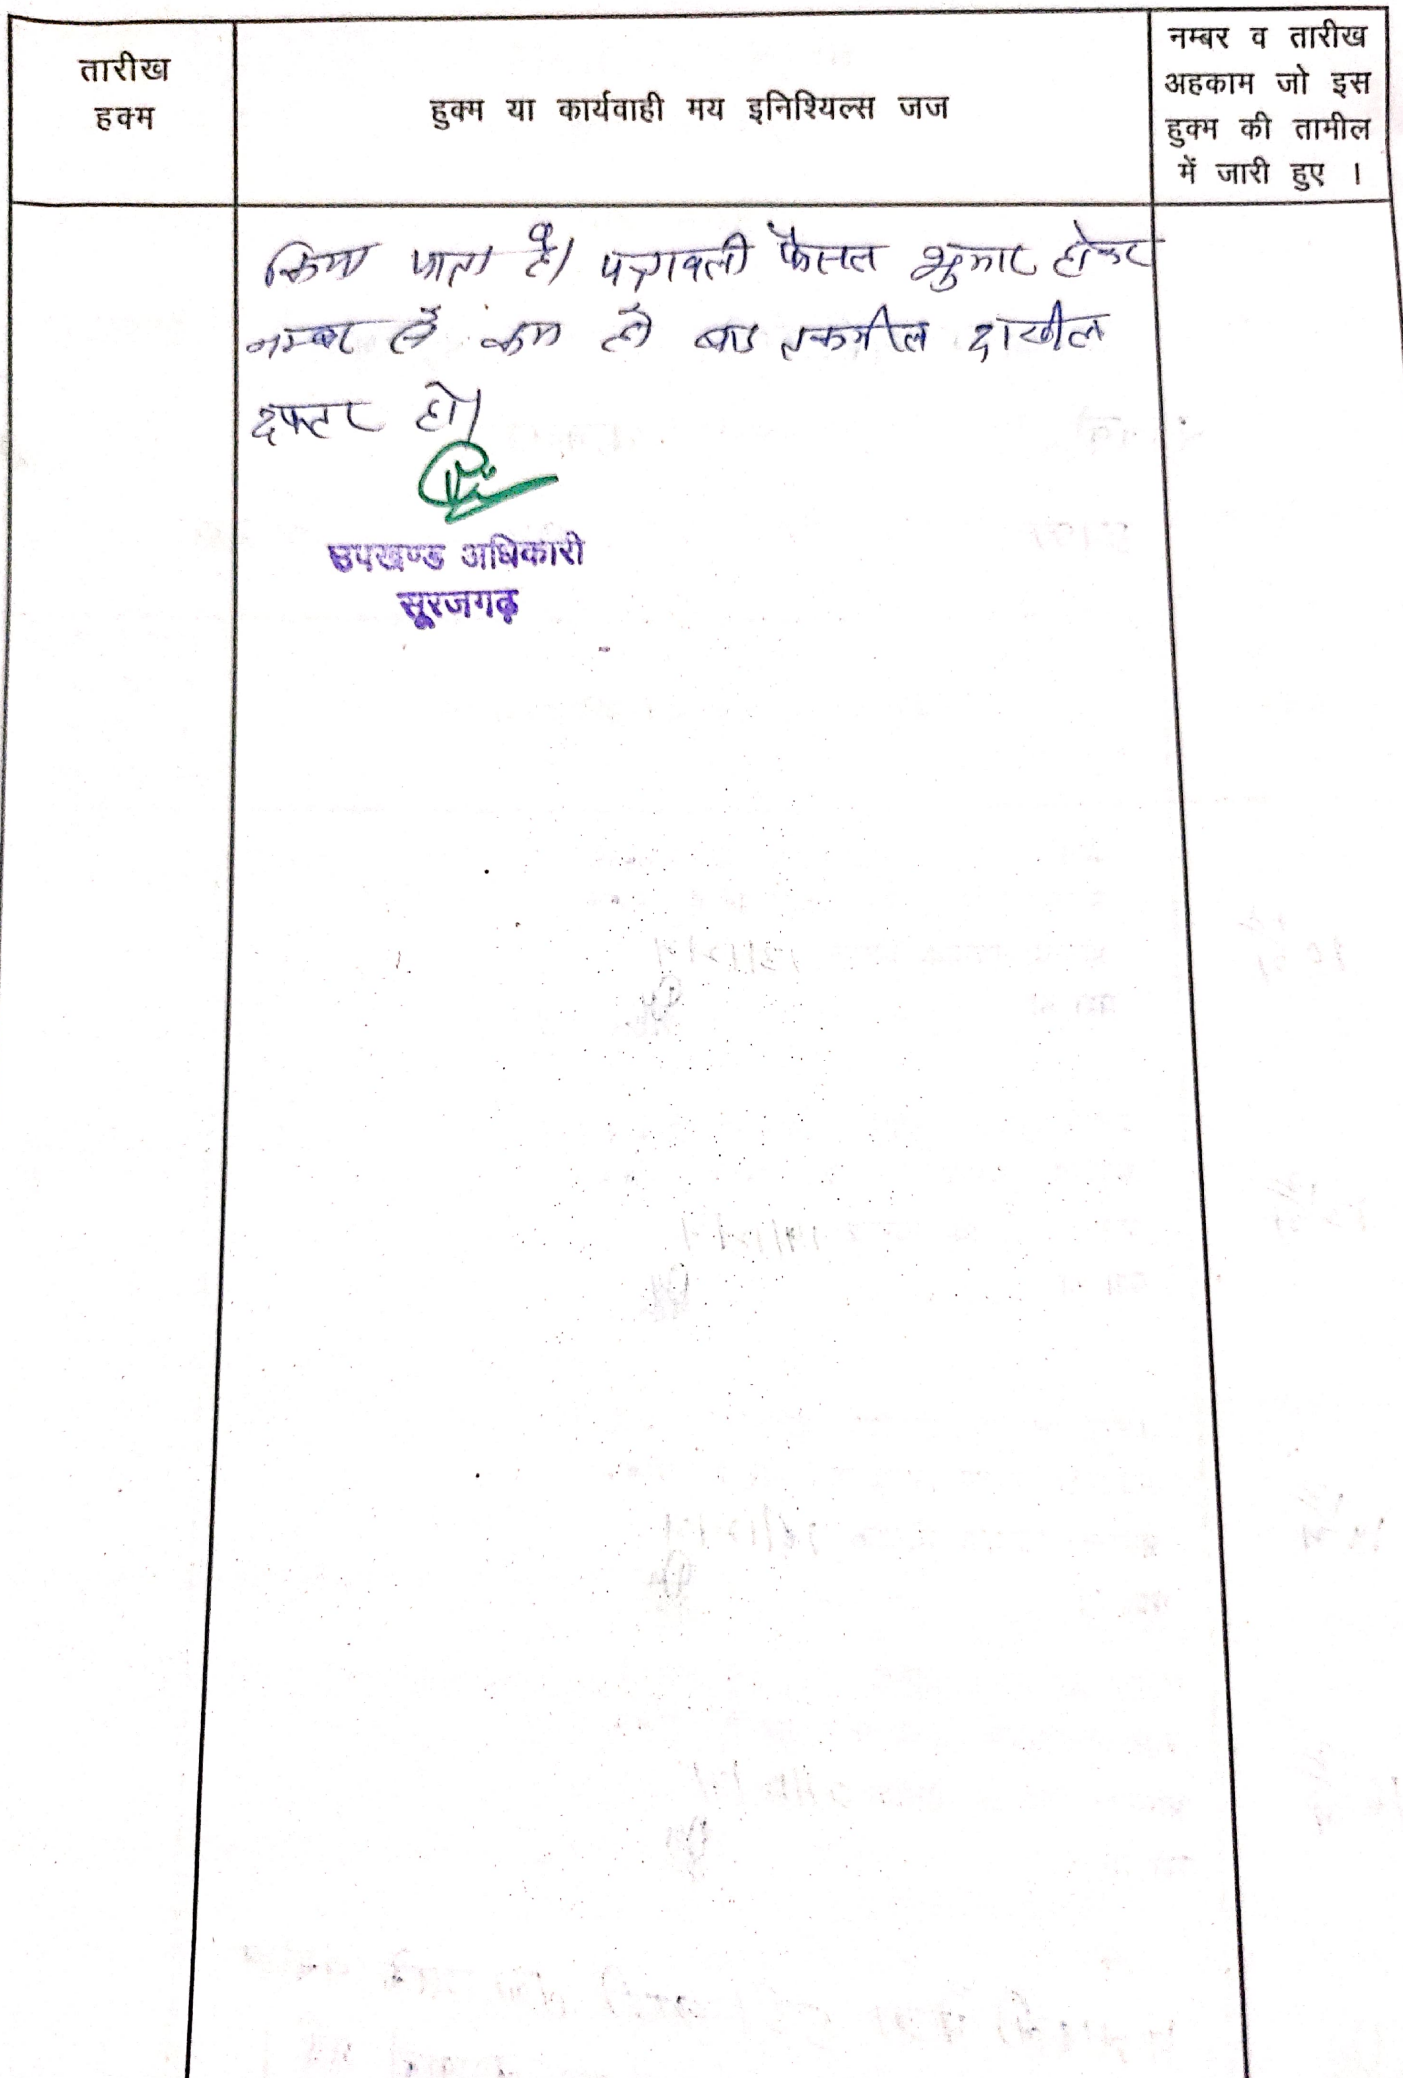 तारीख
हक्म
हुक्म या कार्यवाही मय इनिश्यिल्स जज
नम्बर व तारीख
अहकाम जो इस
हुक्म की तामील
में जारी हुए ।
किया जाता है। पत्रावली फैसल शुमार होकर
नम्बर से कम हो बाद तकमील दाखील
दफ्तर हो।
उपखण्ड अधिकारी
सूरजगढ़